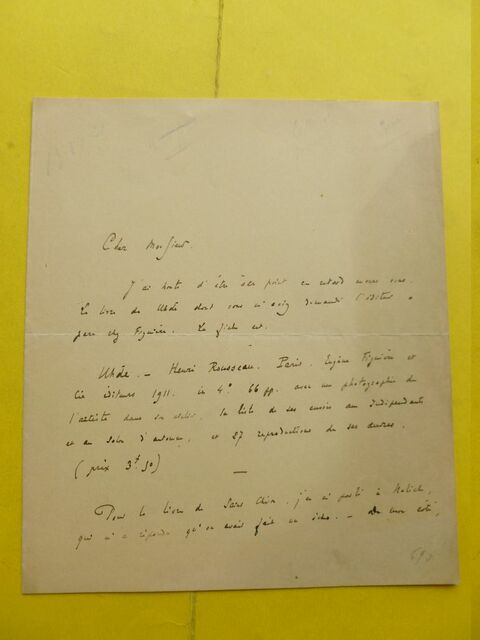 Cher Monsieur.
J'ai honte d'être à ce point en retard envers vous.
Le livre de Uhde dont vous m'avez demandé l'éditeur a
paru chez Figuière. La fiche est.
Uhde. — Henri Rousseau. Paris. Eugène Figuière et
Cie éditeurs 1911. in 4° 66 pp. avec une photographie de
l'artiste dans son atelier, la liste de ses envois aux Indépendants
et au Salon d'automne, et 27 reproductions de ses œuvres.
(prix 3f 50)
—
Pour le livre de j'en ai parlé à
qui m'a répondu qu'on avait fait un . — De mon côté,